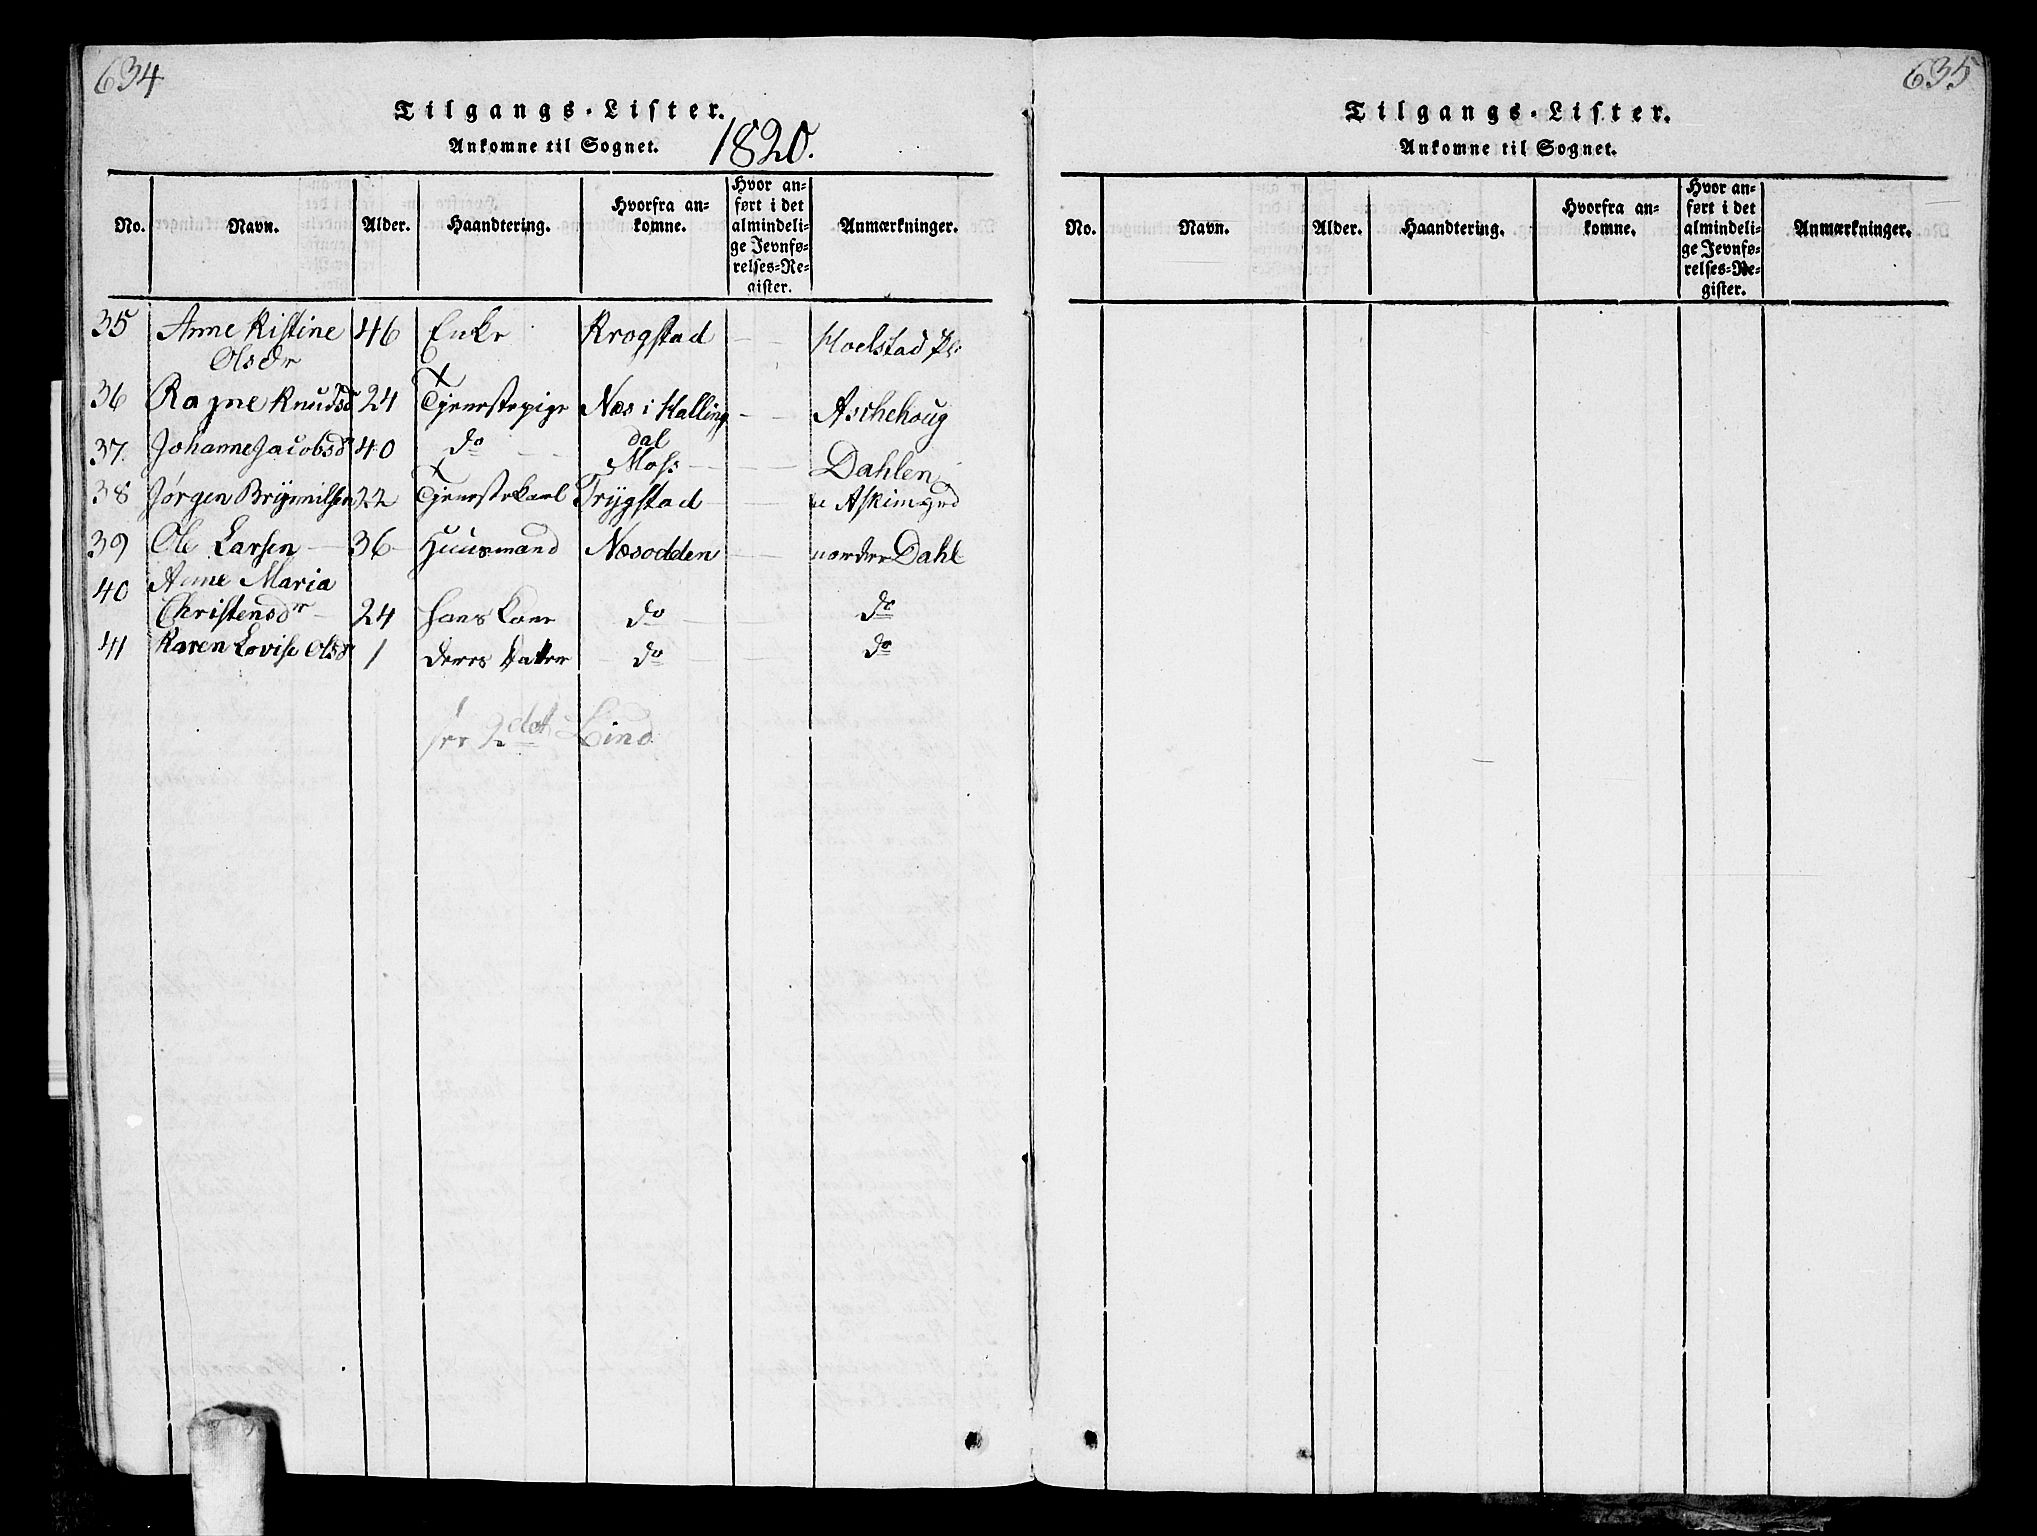 634
Tilgangs-Lister.
Ankomne til Sognet. 1820.
No. Navn. Alder. Haandtering. Hvorfra an=komne. Hvor an=ført i det almindeli=ge Jevnfø=relses=Re=gister. Anmærkninger.
35 Anne Kistine Olsdr 46 Enke Krogstad Hoelstad Pl:
36 Ragne Knudsdr 24 Tjenestepige Næs i Hallingdal Aschehoug
37. Johanne Jacobsdr 40 do Moss Dahlen
38 Jørgen Brynnilsen 22 Tjenestekarl Trygstad Askimgrd
39 Ole Larsen 36 Huusmand Næsodden nordre Dahl
40 Anne Maria Christensdr 24 hans Kone do do
41 Karen Lovise Olsdr 1 deres datter do do
see 2det Bind
635
Tilgangs-Lister.
Ankomne til Sognet.
No. Navn. Alder. Haandtering. Hvorfra an=komne. Hvor an=ført i det almindeli=ge Jevnfø=relses=Re=gister. Anmærkninger.